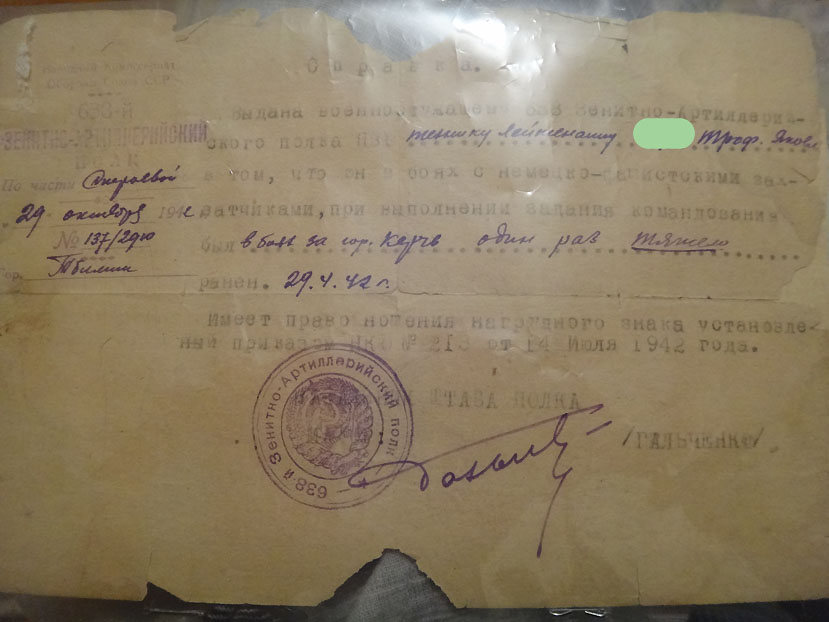 Народный Комиссариат
Обороны Союза ССР
638-й
ЗЕНИТНО-АРТИЛЛЕРИЙСКИЙ
ПОЛК
По части Строевой
"29" октября 194
№ 137/29ю
Гор. Тбилиси
Справка.
Выдана военнослужащему 638 Зенитно-Артиллерий-
ского полка ПВО технику лейтенанту Троф. Яковл
в том, что он в боях с немецко-фашистскими зах-
ватчиками, при выполнении задания командования
был в боях за гор. Керчь один раз тяжело
ранен. 29.4.42 г.
Имеет право ношения нагрудного знака установле-
ный приказом НКО № 213 от 14 Июля 1942 года.
ШТАБА ПОЛКА
/ГАЛЬЧЕНКО/
638-й Зенитно-Артиллерийский полк